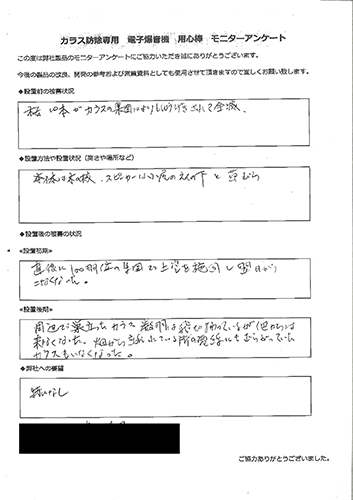 カラス防除専用 電子爆音機 用心棒 モニターアンケート
この度は弊社製品のモニターアンケートにご協力いただき誠にありがとうございます。
今後の製品の改良、開発の参考および営業資料としても使用させて頂きますので宜しくお願い致します。
◆設置前の被害状況
桜 10本がカラスの集団により されて全滅
◆設置方法や設置状況（高さや場所など）
本体は木の枝、スピーカーは小屋の の下と
◆設置後の被害の状況
≪設置初期≫
直後に100羽位の集団で上空を旋回し翌日から
こなくなった。
≪設置後期≫
周辺で巣立ったカラス 数羽は飛び回っているが他からは
来なくなった。畑から 離れている所の電線にも むらがっていた
カラスもいなくなった。
◆弊社への要望
特になし
ご協力ありがとうございました。